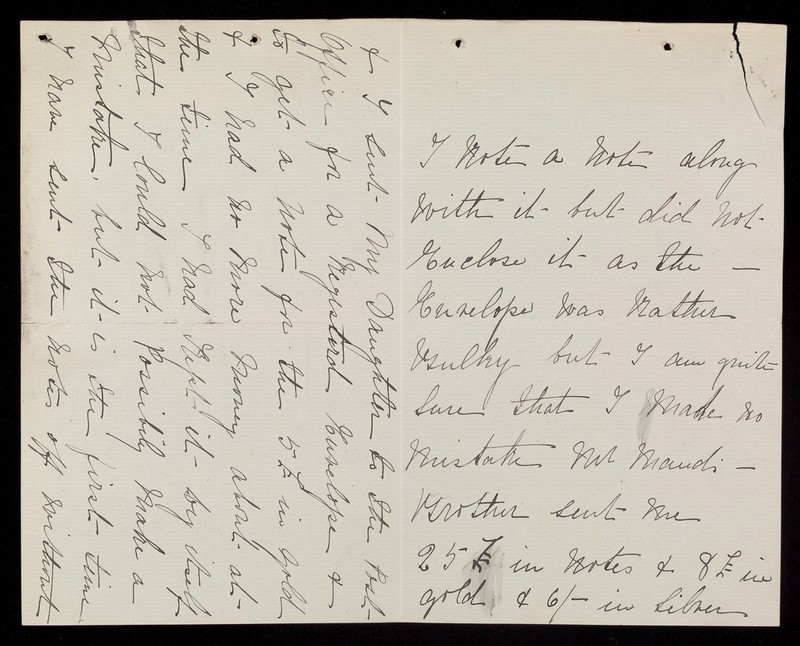 I Wrote a Note along
with it - but did Not
Enclose it as the —
Envelope was Rather
Bulky but I am quite
Sure that I Made no
Mistake Mr Maudi —
Brother sent Me
25 £ in Notes & 8£ in
gold & 6/- in Silver
& I sent My Daughter to the Post
Office for a Registerd Envelope &
to get a Note for the 5£ in gold
& I had no More Money about at
the time I had Kept it by itself
that I Could not Possibly Make a
Mistake, but it is the first time
I have sent the Notes off without